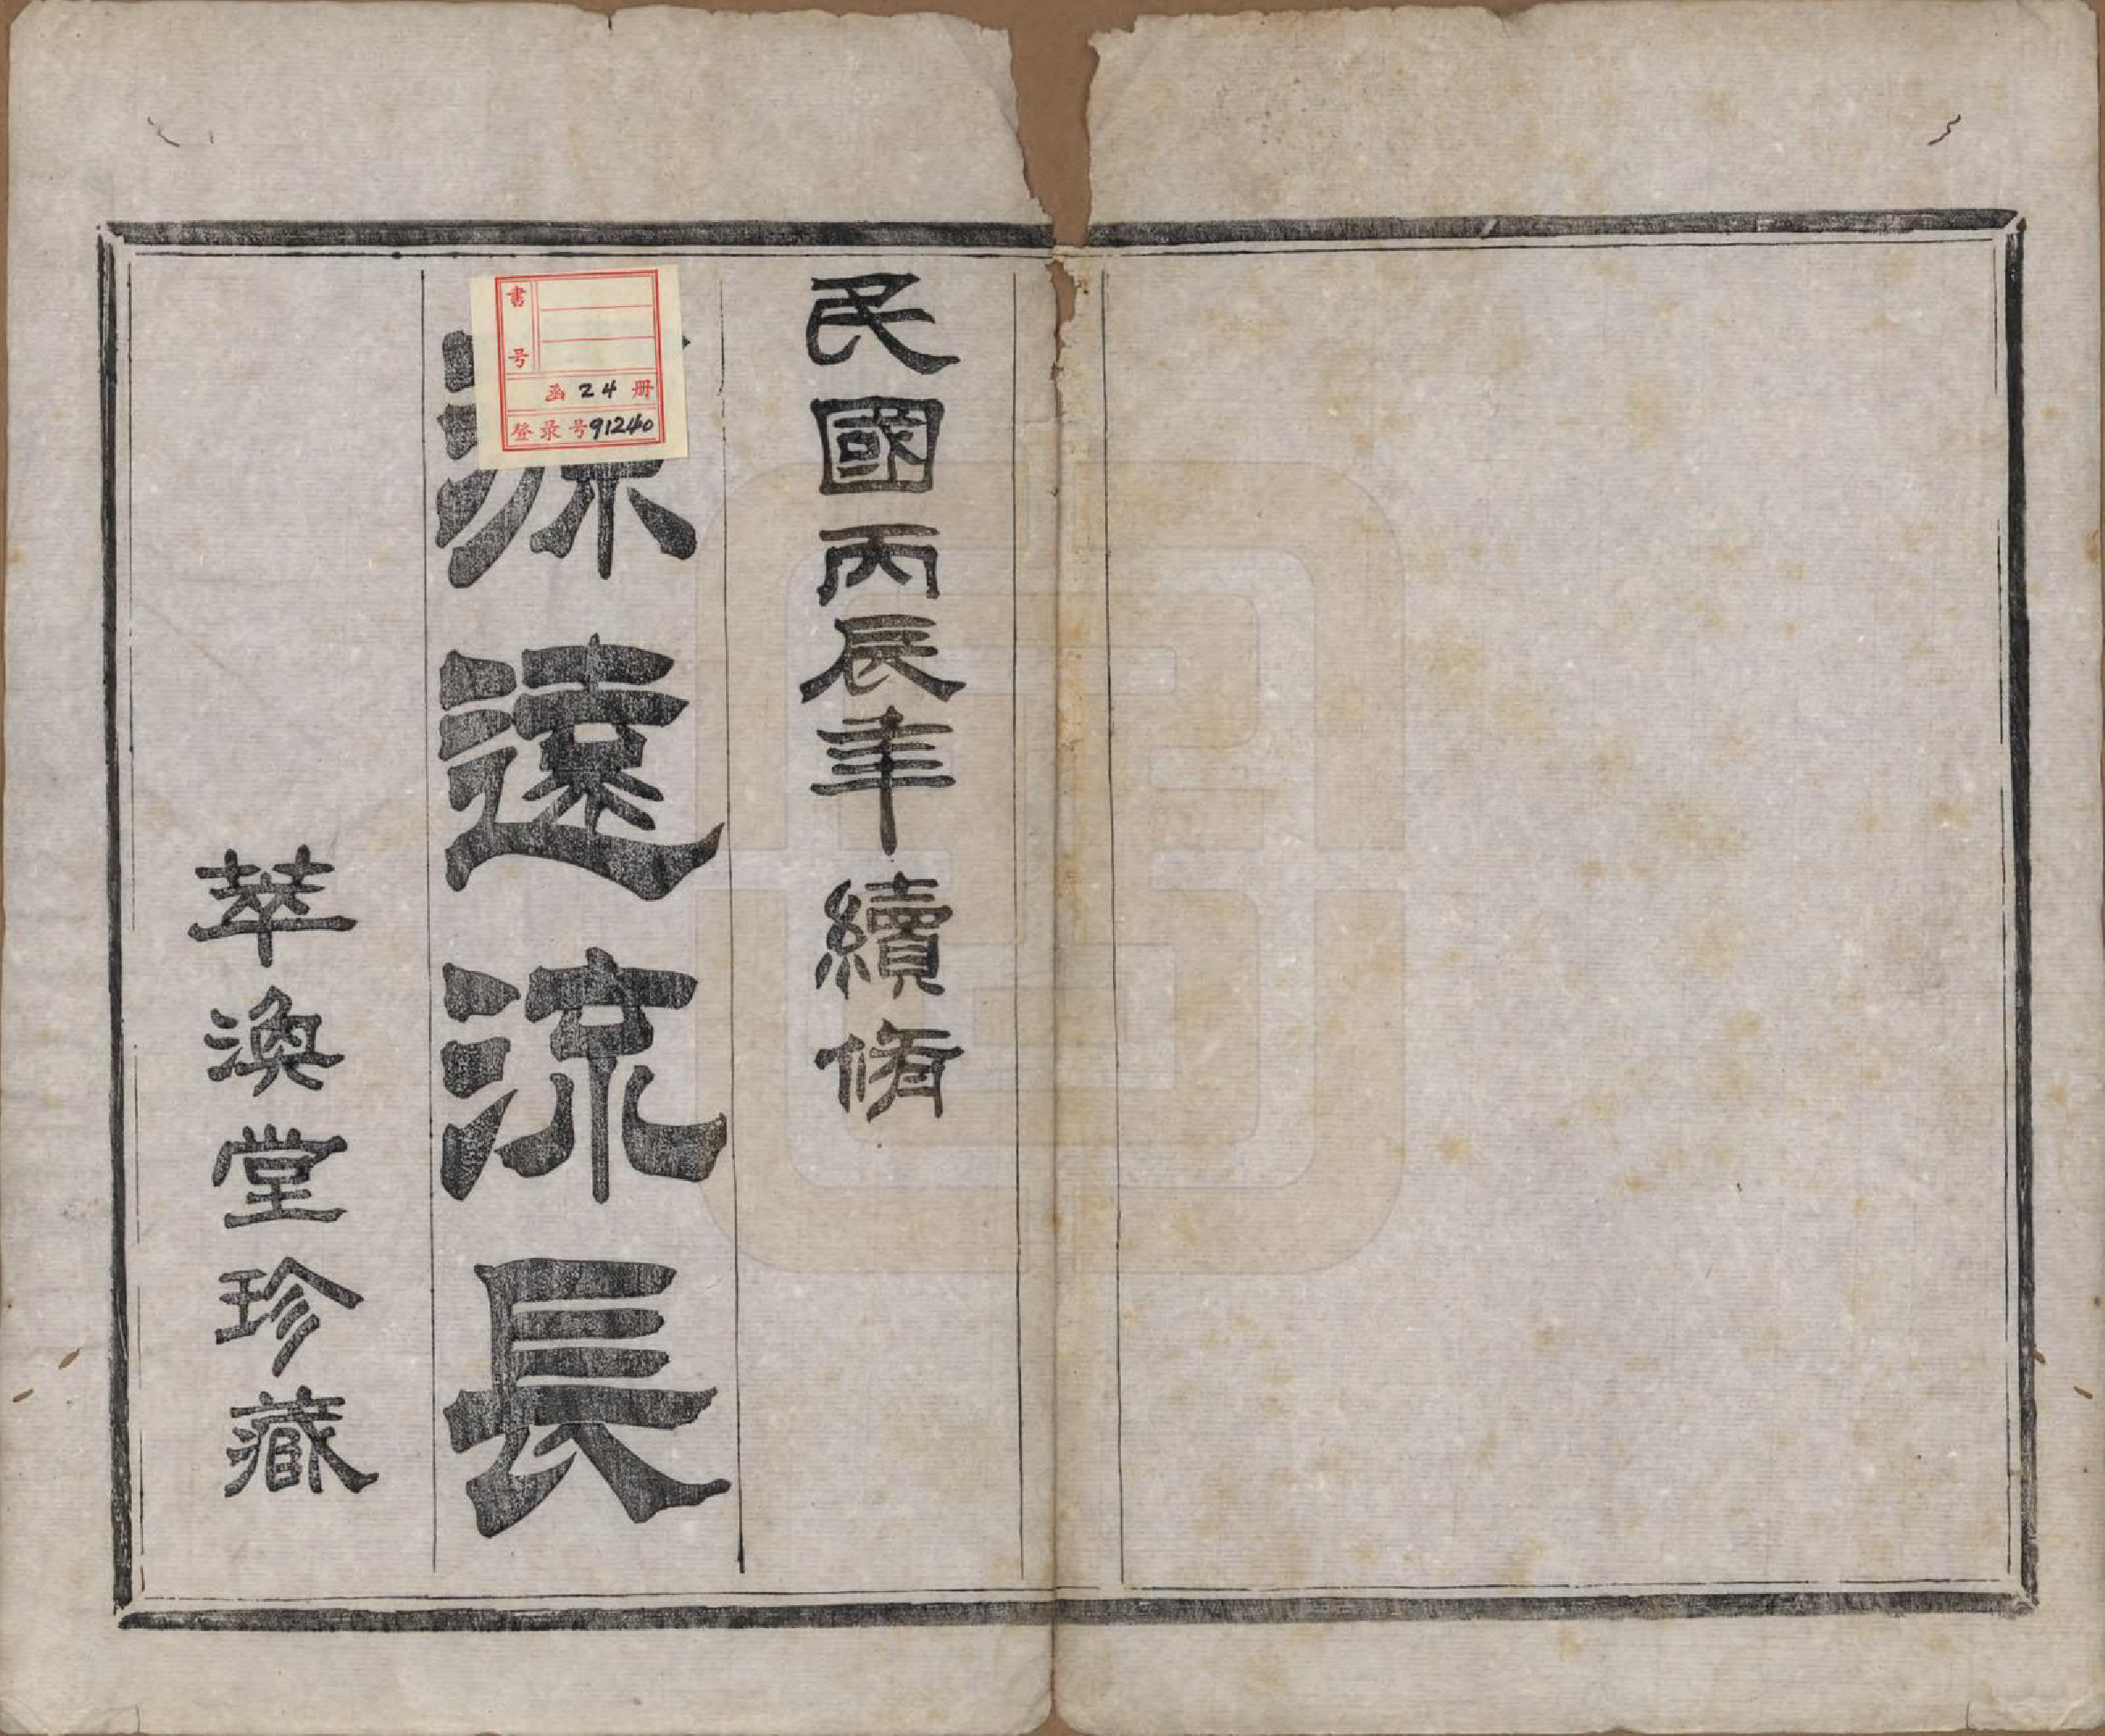 民國丙辰年續脩
源遠流長
萃渙堂珍藏
書号
函 24 册
登录号 91240